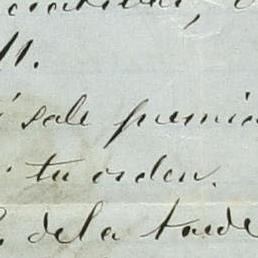 11.
sale premia
tu orden.
de la tarde